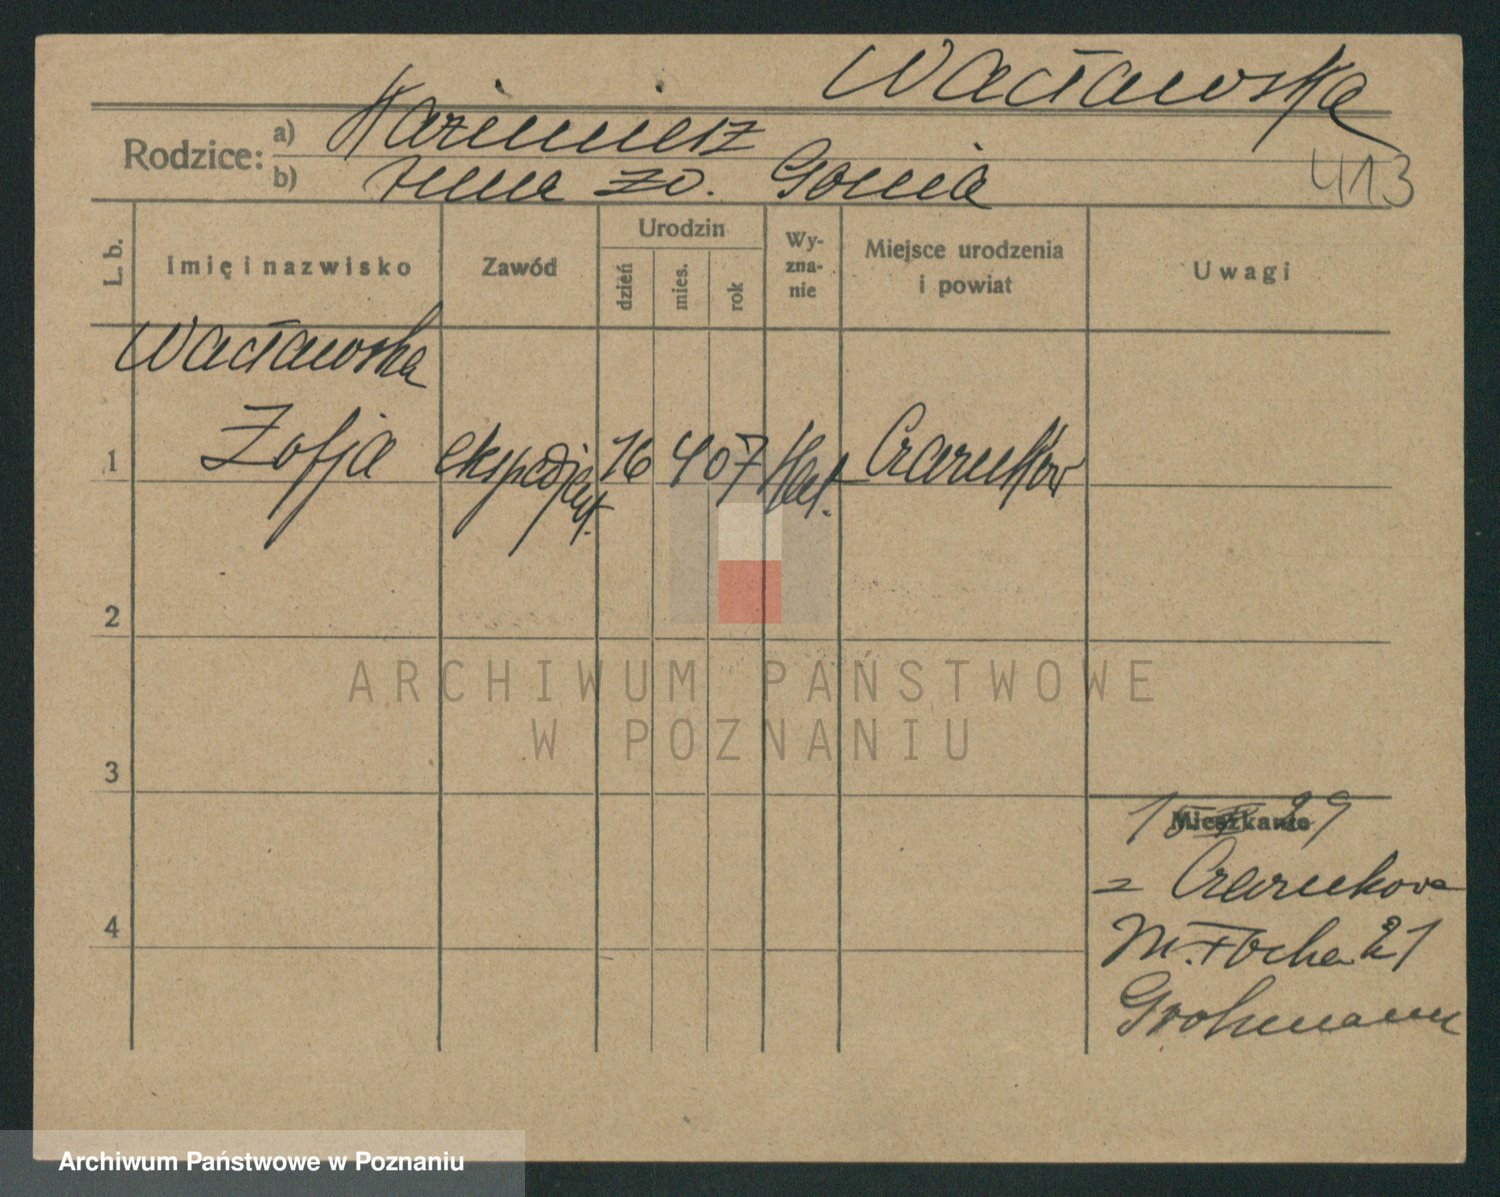 Wacławska
Rodzice:
a) Kazimierz
b) zo. Gonia
413
L. b.
Imię i nazwisko
Zawód
Urodzin
dzień
mies.
rok
Wy-
zna-
nie
Miejsce urodzenia
i powiat
Uwagi
Wacławska
1 Zofja ekspedjent. 16 4 07 Kat. Czarnków
2
ARCHIWUM PAŃSTWOWE
W POZNANIU
3
Mieszkanie
29
z Czarnkowa
M. Focha 21
Grohmann
4
Archiwum Państwowe w Poznaniu